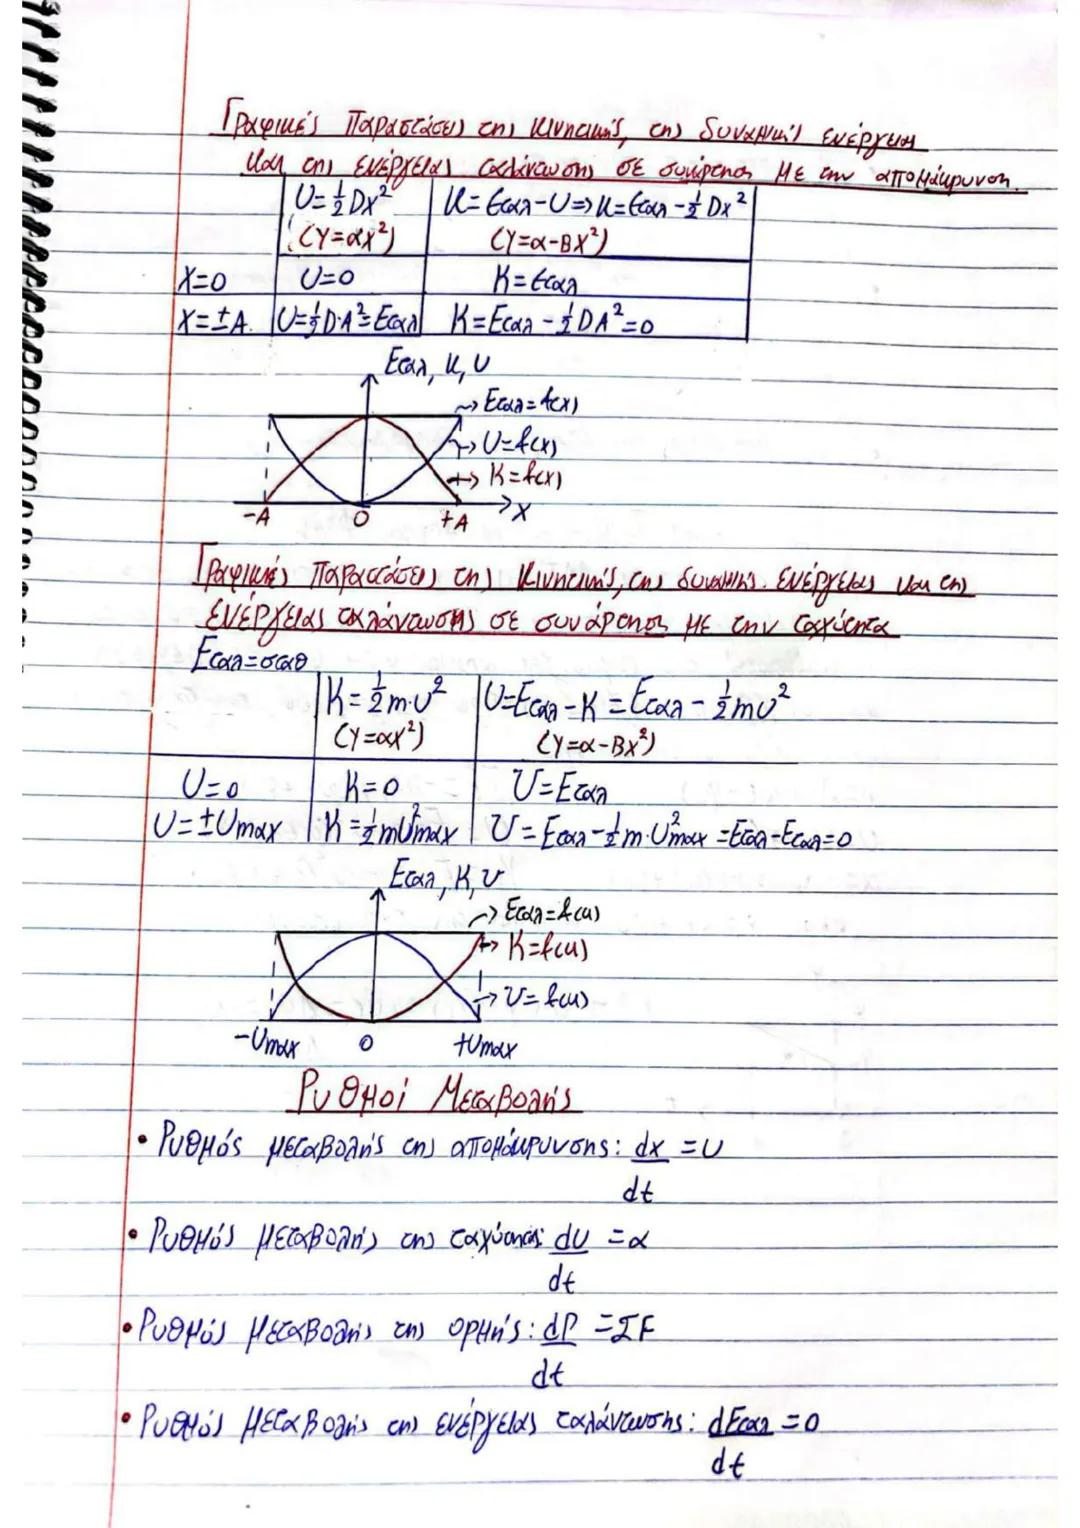 Γραφικές Παραστάσεις της Κινητικής, της Δυναμικής Ενέργειας
και της Ενέργειας ταλάντωσης σε συνάρτηση με την απομάκρυνση.
U=½Dx² K=Εταλ-U=>K=Εταλ-½Dx²
(Y=αx²) (Y=α-Βx²)
X=0 U=0 K=Εταλ
X=±A. U=½D·A²=Εταλ K=Εταλ-½DA²=0
Εταλ, K, U
→ Εταλ=f(x)
→ U=f(x)
→ K=f(x)
-A 0 +A →x
Γραφικές Παραστάσεις της Κινητικής, της δυναμικής Ενέργειας και της
Ενέργειας ταλάντωσης σε συνάρτηση με την ταχύτητα
Εταλ=σταθ
K=½m·υ² U=Εταλ-K=Εταλ-½mυ²
(Y=αx²) (Y=α-Βx²)
υ=0 K=0 U=Εταλ
υ=±υmax K=½mυ²max U=Εταλ-½m·υ²max=Εταλ-Εταλ=0
Εταλ, K, U
→ Εταλ=f(υ)
→ K=f(υ)
→ U=f(υ)
-υmax 0 +υmax
Ρυθμοί Μεταβολής
• Ρυθμός μεταβολής της απομάκρυνσης: dx/dt =υ
• Ρυθμός μεταβολής της ταχύτητας: dυ/dt =α
• Ρυθμός μεταβολής της ορμής: dP/dt =ΣF
• Ρυθμός μεταβολής της ενέργειας ταλάντωσης: dEταλ/dt =0